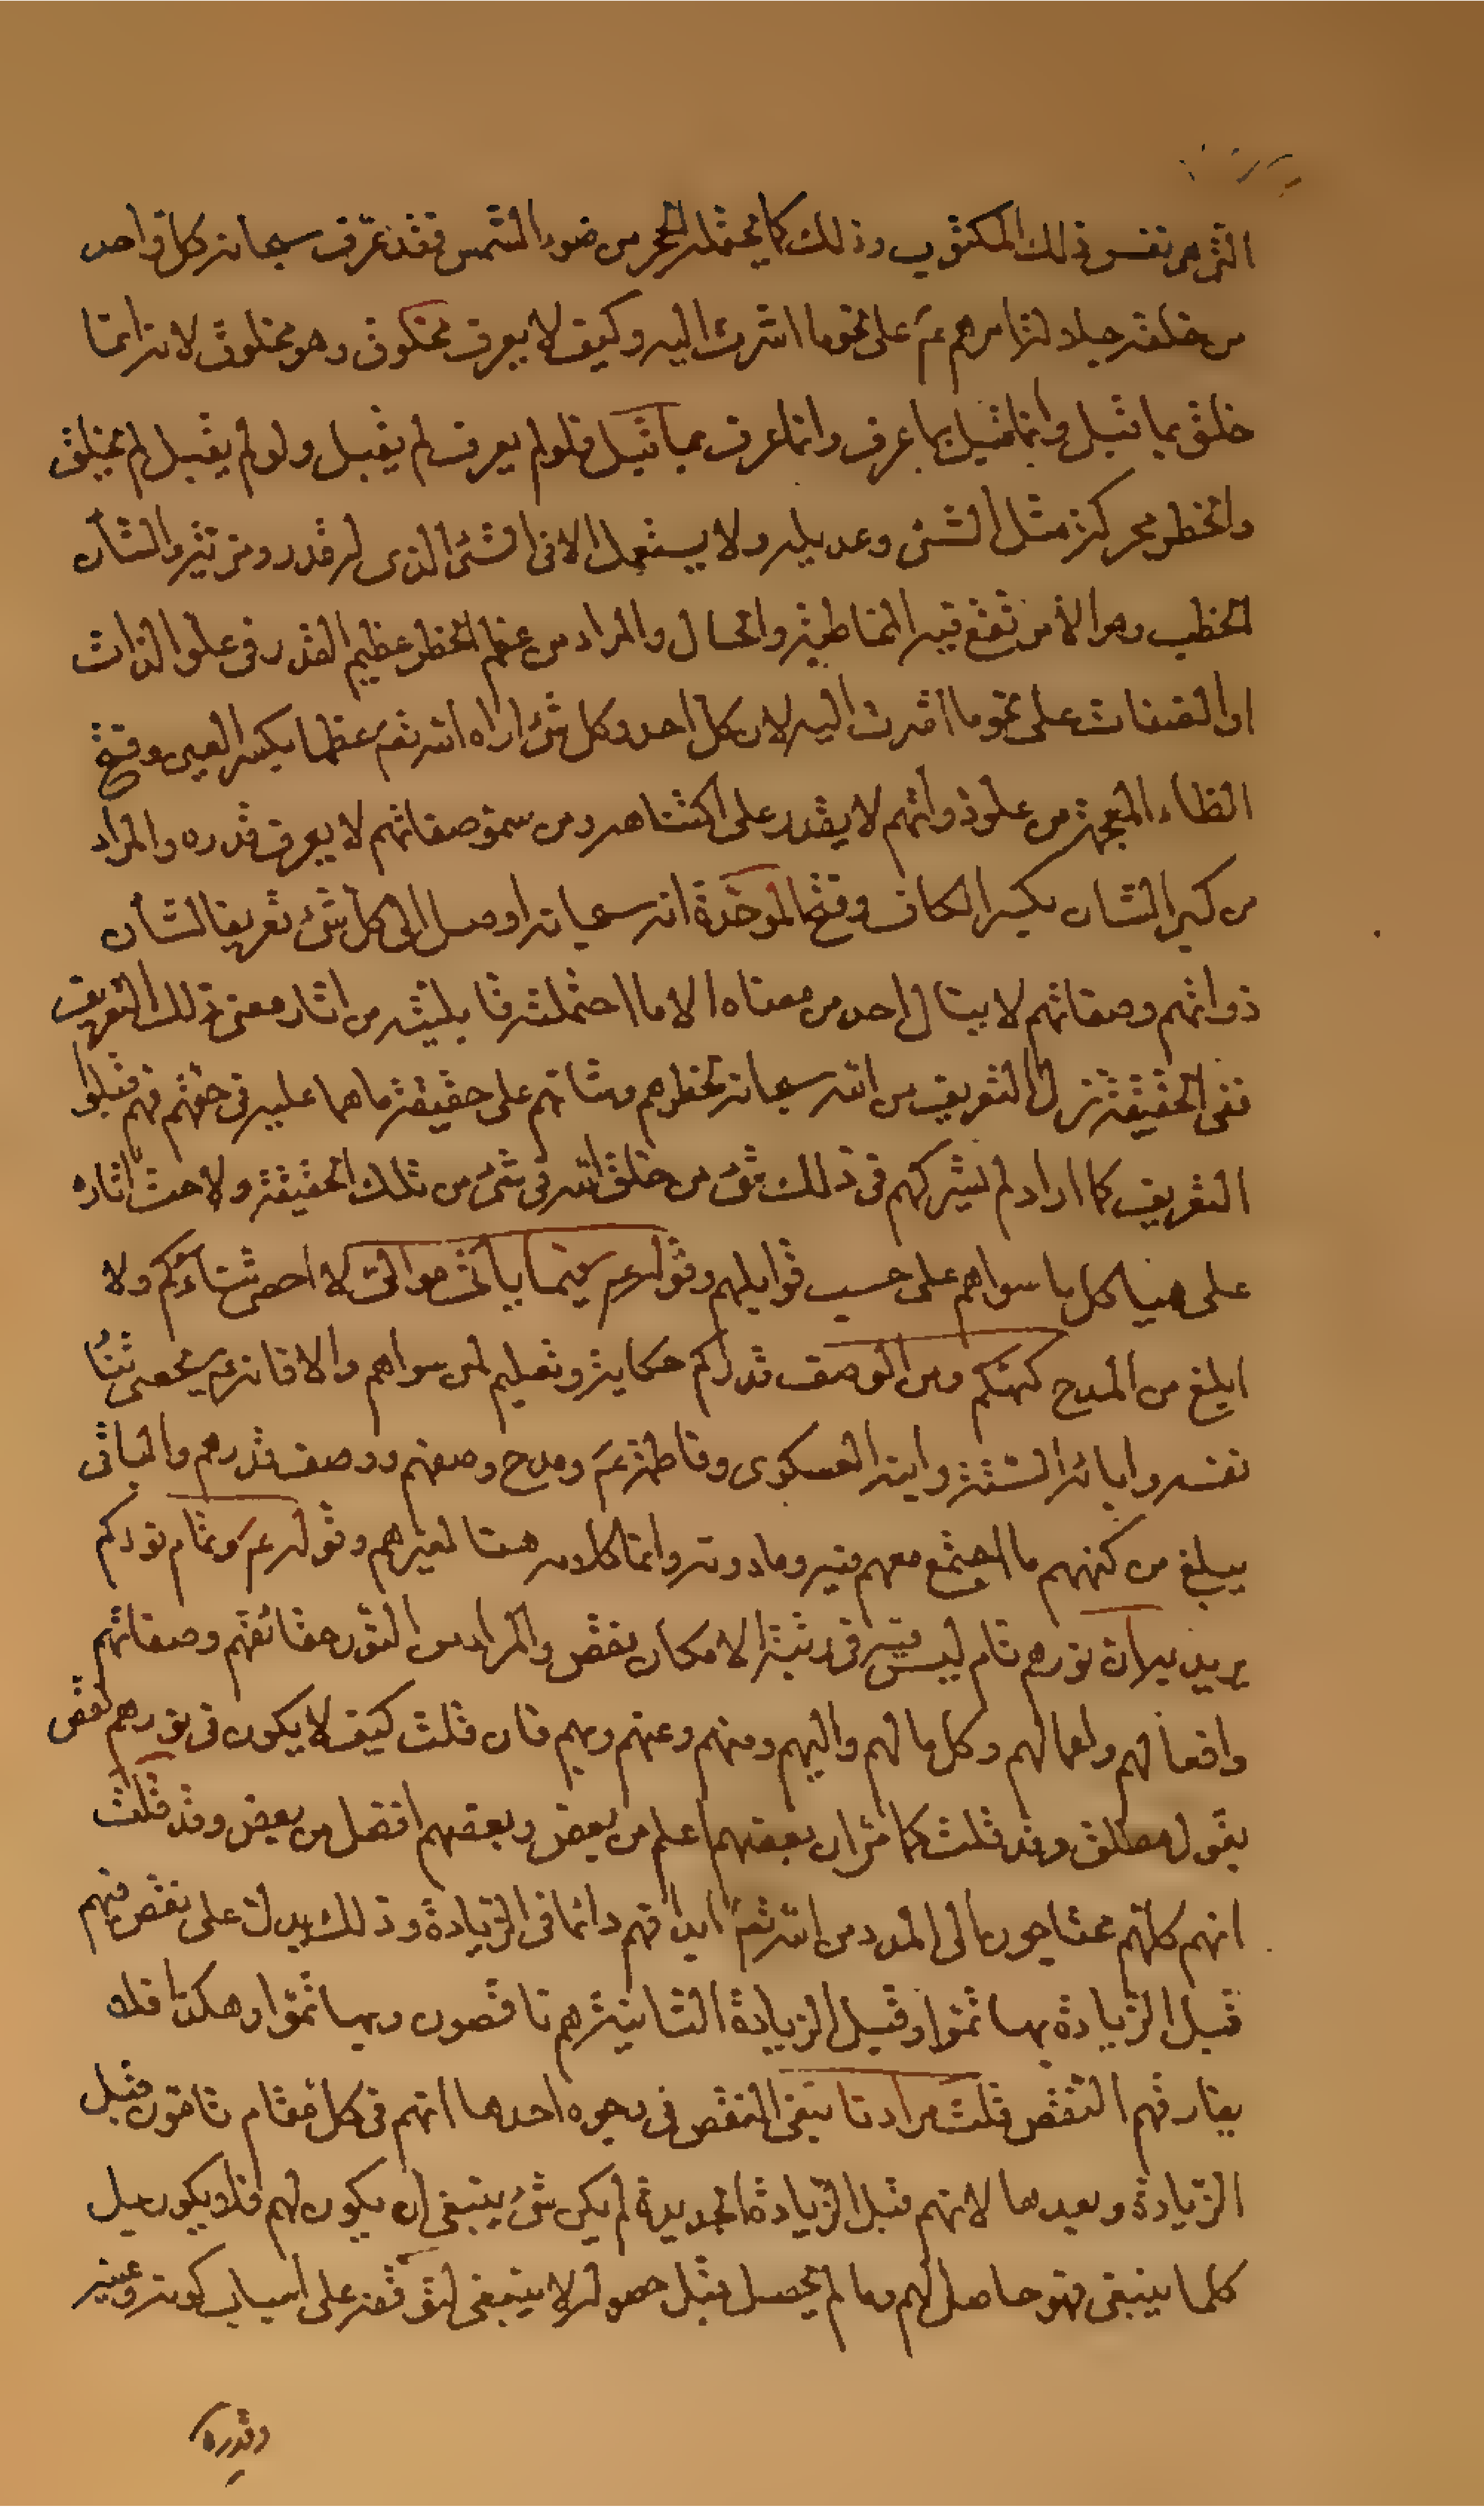 الثر من نفس ذلك المكتوب وذلك كما يحتمله الحجر من ضوء الشمس فقد عرّف سبحانه كل واحد
من خلقه جلالة امرهم عَ على نحو ما اشرت اليه وكيف لا يعرف مخلوق وهو مخلوق لانه انما
خلق بما قبل وانما قبل بما عرف وانما عرف بما قبل فلو لم يعرف لم يقبل ولو لم يقبل لم يخلق
والخطر محركة مثل الشئ وعديله ولا يستعمل الا فى الشئ الذى له قدر ومزية والشأن
الخطب وهو الأمر تقع فيه المخاطبة والحال والمراد من عظم الخطر عظيم القدر فى علو الذات
او الصفات على نحو ما اشرت اليه لان كل احد وكل شئ اراه الله تعَ عظما بكسر العين وفتح
الظاء المعجمة من علو ذواتهم لا يقدر على اكتناهه ومن سمو صفاتهم لا يعرف قدره والمراد
من كبر الشان بكسر الكاف وفتح الموحّدة انه سبحانه اوصل الى كل شئ تعريفا لشأن
ذواتهم وصفاتهم لا ينال احد من معناه الا ما احتملته قابليته من اثار معنى ذلك التعريف
ففى الحقيقة نزل التعريف من الله سبحانه بخطرهم وشانهم على حقيقة ما هما عليه فى حقهم فهم قبلوا
التعريف كما اراد لم يشركهم فى ذلك شئ من خلق الله فى شئ من تلك الحقيقة ولاحت اثاره
على هياكل ما سواهم على حسب قوابلهم وقوله عَ فيما ياتى موالىّ لا احصى ثناءكم ولا
ابلغ من المدح كنهكم ومن الوصف قدركم حكاية وتعليم لمن سواهم والا فانه عَ يحصى ثناء
نفسه وابائه الستة وابنه العسكرى وفاطمة عَ ومدح وصفهم ووصف قدرهم والباقى
يبلغ من كنههم ما اجتمع معهم فيه وما دونه وانما كلامه هنا لغيرهم وقوله عَ وتمام نوركم
يريد به ان نورهم تام ليس فيه فى رتبة الامكان نقص والمراد من النور حقائقهم وصفاتهم
وافعالهم واعمالهم وكل ما لهم واليهم ومنهم وعنهم وبهم فان قلت كيف لا يكون فى نورهم نقص
بقول مطلق وقد قلت كما مرّ ان بعضهم اعلم من بعض وبعضهم افضل من بعض وقد قلت
انهم كلهم محتاجون الى المدد من الله تعَ ابدا فهم دائما فى الزيادة وذلك يدل على نقص فهم
قبل الزيادة بها تموا وقبل الزيادة الثانية هم ناقصون وبها تموا وهكذا فلا
يفارقهم النقص قلت مرادنا بنفى النقص فى وجوه احدها انهم فى كل مقام تامون قبل
الزيادة وبعدها لانهم قبل الزيادة الجديدة لم يكن شئ ينبغى ان يكون لهم فلا يكون بل
كلما ينبغى فهو حاصل لهم وما لم يحصل قبل حصوله لا ينبغى لتوقفه على اسباب كونه وعينه
وقدره